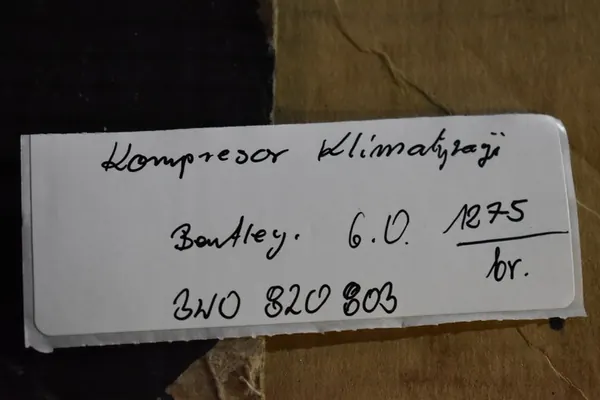 Kompresor Klimatyzacji
Bentley. 6.0. 1275
br.
3W0 820 803